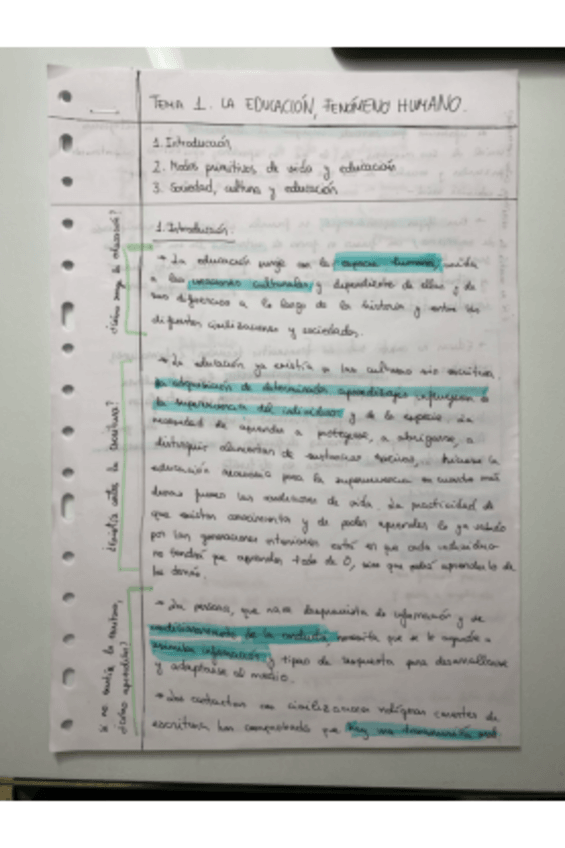 TEMA 1. LA EDUCACIÓN, FENÓMENO HUMANO.
1. Introducción
2. Modos primitivos de vida y educación
3. Sociedad, cultura y educación
1. Introducción.
→ La educación surge con la especie humana, unida
a las creaciones culturales y dependiente de ellas y de
sus diferencias a lo largo de la historia y entre las
diferentes civilizaciones y sociedades.
¿Cómo surge la educación?
→ La educación ya existía en las culturas sin escritura.
La adquisición de determinados aprendizajes influyeron en
la supervivencia del individuo y de la especie. La
necesidad de aprender a protegerse, a abrigarse, a
distinguir alimentos de sustancias nocivas, hicieron la
educación necesaria para la supervivencia en cuanto más
duras fueron las condiciones de vida. La practicidad de
que existan conocimientos y de poder aprender lo ya sabido
por las generaciones anteriores está en que cada individuo
no tendrá que aprender todo de 0, sino que podrá aprenderlo de
los demás.
¿Existía antes la escritura?
→ La persona, que nace desprovista de información y de
condicionamiento de la conducta, necesita que se le ayude a
asimilar información y tipos de respuesta para desarrollarse
y adaptarse al medio.
Si no existía la escritura,
¿cómo aprendían?
→ Los contactos con civilizaciones indígenas carentes de
escritura han comprobado que hay una transmisión oral